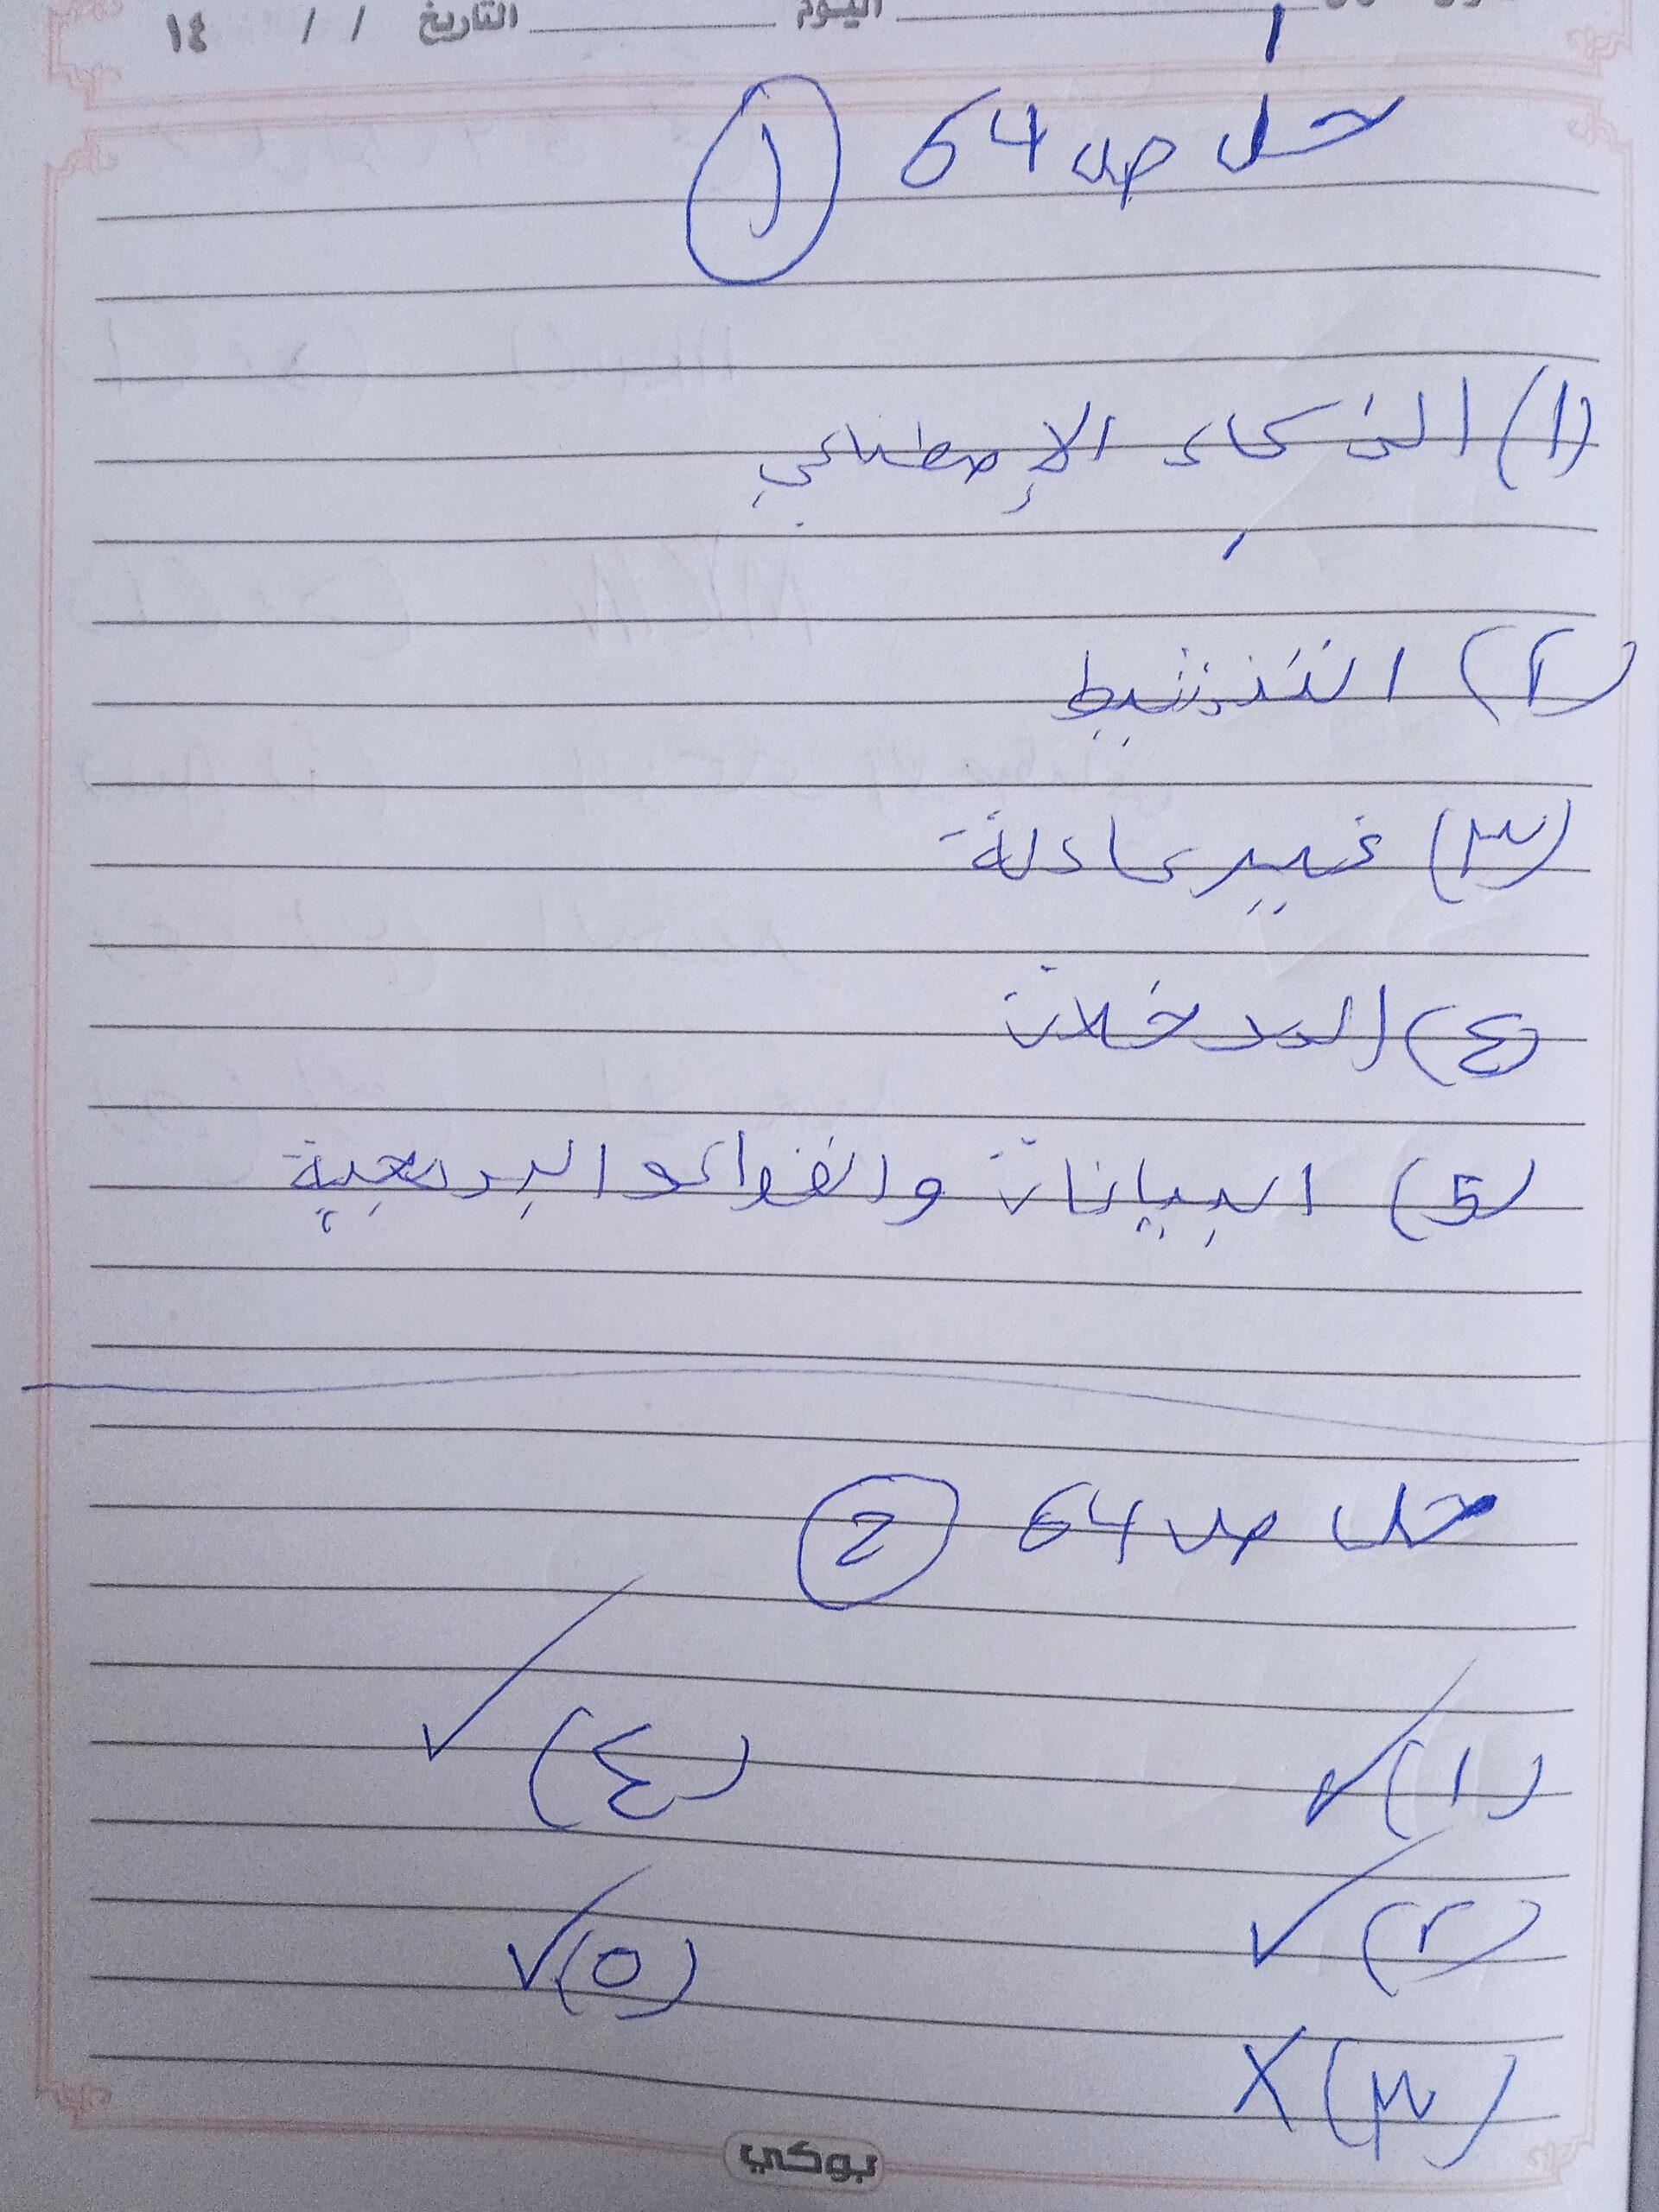 اليوم التاريخ / / ١٤
حل صـ 64 ١
(١) الذكاء الإصطناعي
(٢) التنشيط
(٣) غير عادلة
(٤) المدخلات
(5) البيانات والقواعد البرمجية
حل صـ 64 2
(١) ✓ (٤) ✓
(٢) ✓ (٥) ✓
(٣) X
بوكي